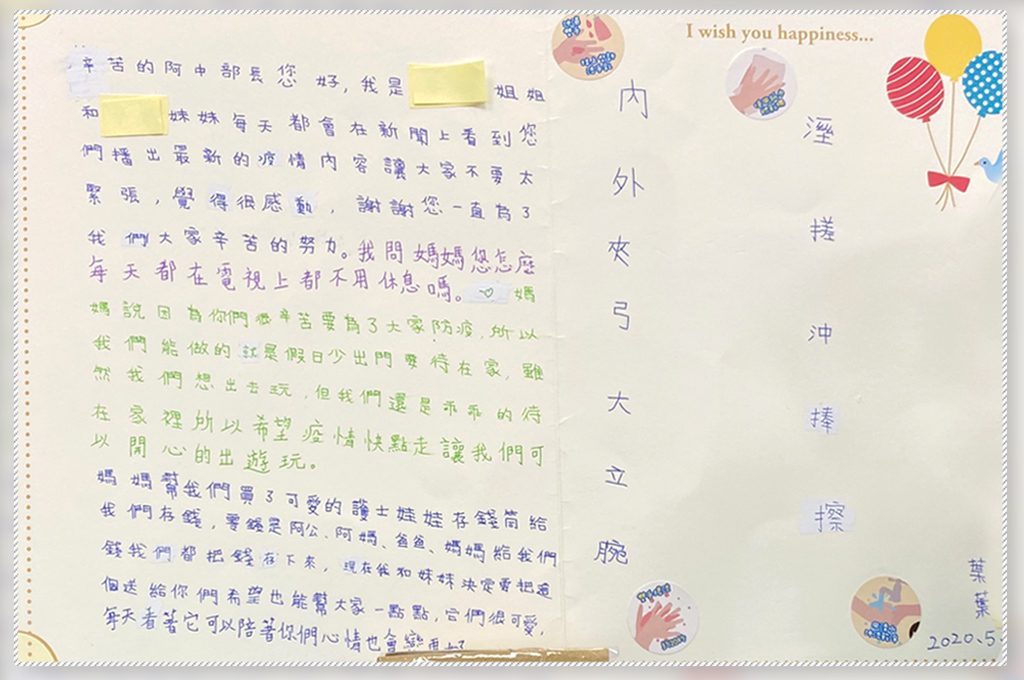 辛苦的阿中部長您好,我是 姐姐
和 妹妹每天都會在新聞上看到您
們播出最新的疫情內容讓大家不要太
緊張,覺得很感動,謝謝您一直為了
我們大家辛苦的努力。我問媽媽您怎麼
每天都在電視上都不用休息嗎。媽
媽說因為你們很辛苦要為了大家防疫,所以
我們能做的就是假日少出門要待在家,雖
然我們想出去玩,但我們還是乖乖的待
在家裡所以希望疫情快點走讓我們可
以開心的出遊玩。
媽媽幫我們買了可愛的護士娃娃存錢筒給
我們存錢,零錢是阿公、阿媽、爸爸、媽媽給我們
錢我們都把錢存下來,現在我和妹妹決定要把這
個送給你們希望也能幫大家一點點,它們很可愛,
每天看著它可以陪著你們心情也會變
I wish you happiness...
內
外
夾
弓
大
立
腕
溼
搓
沖
捧
擦
葉
葉
2020.5